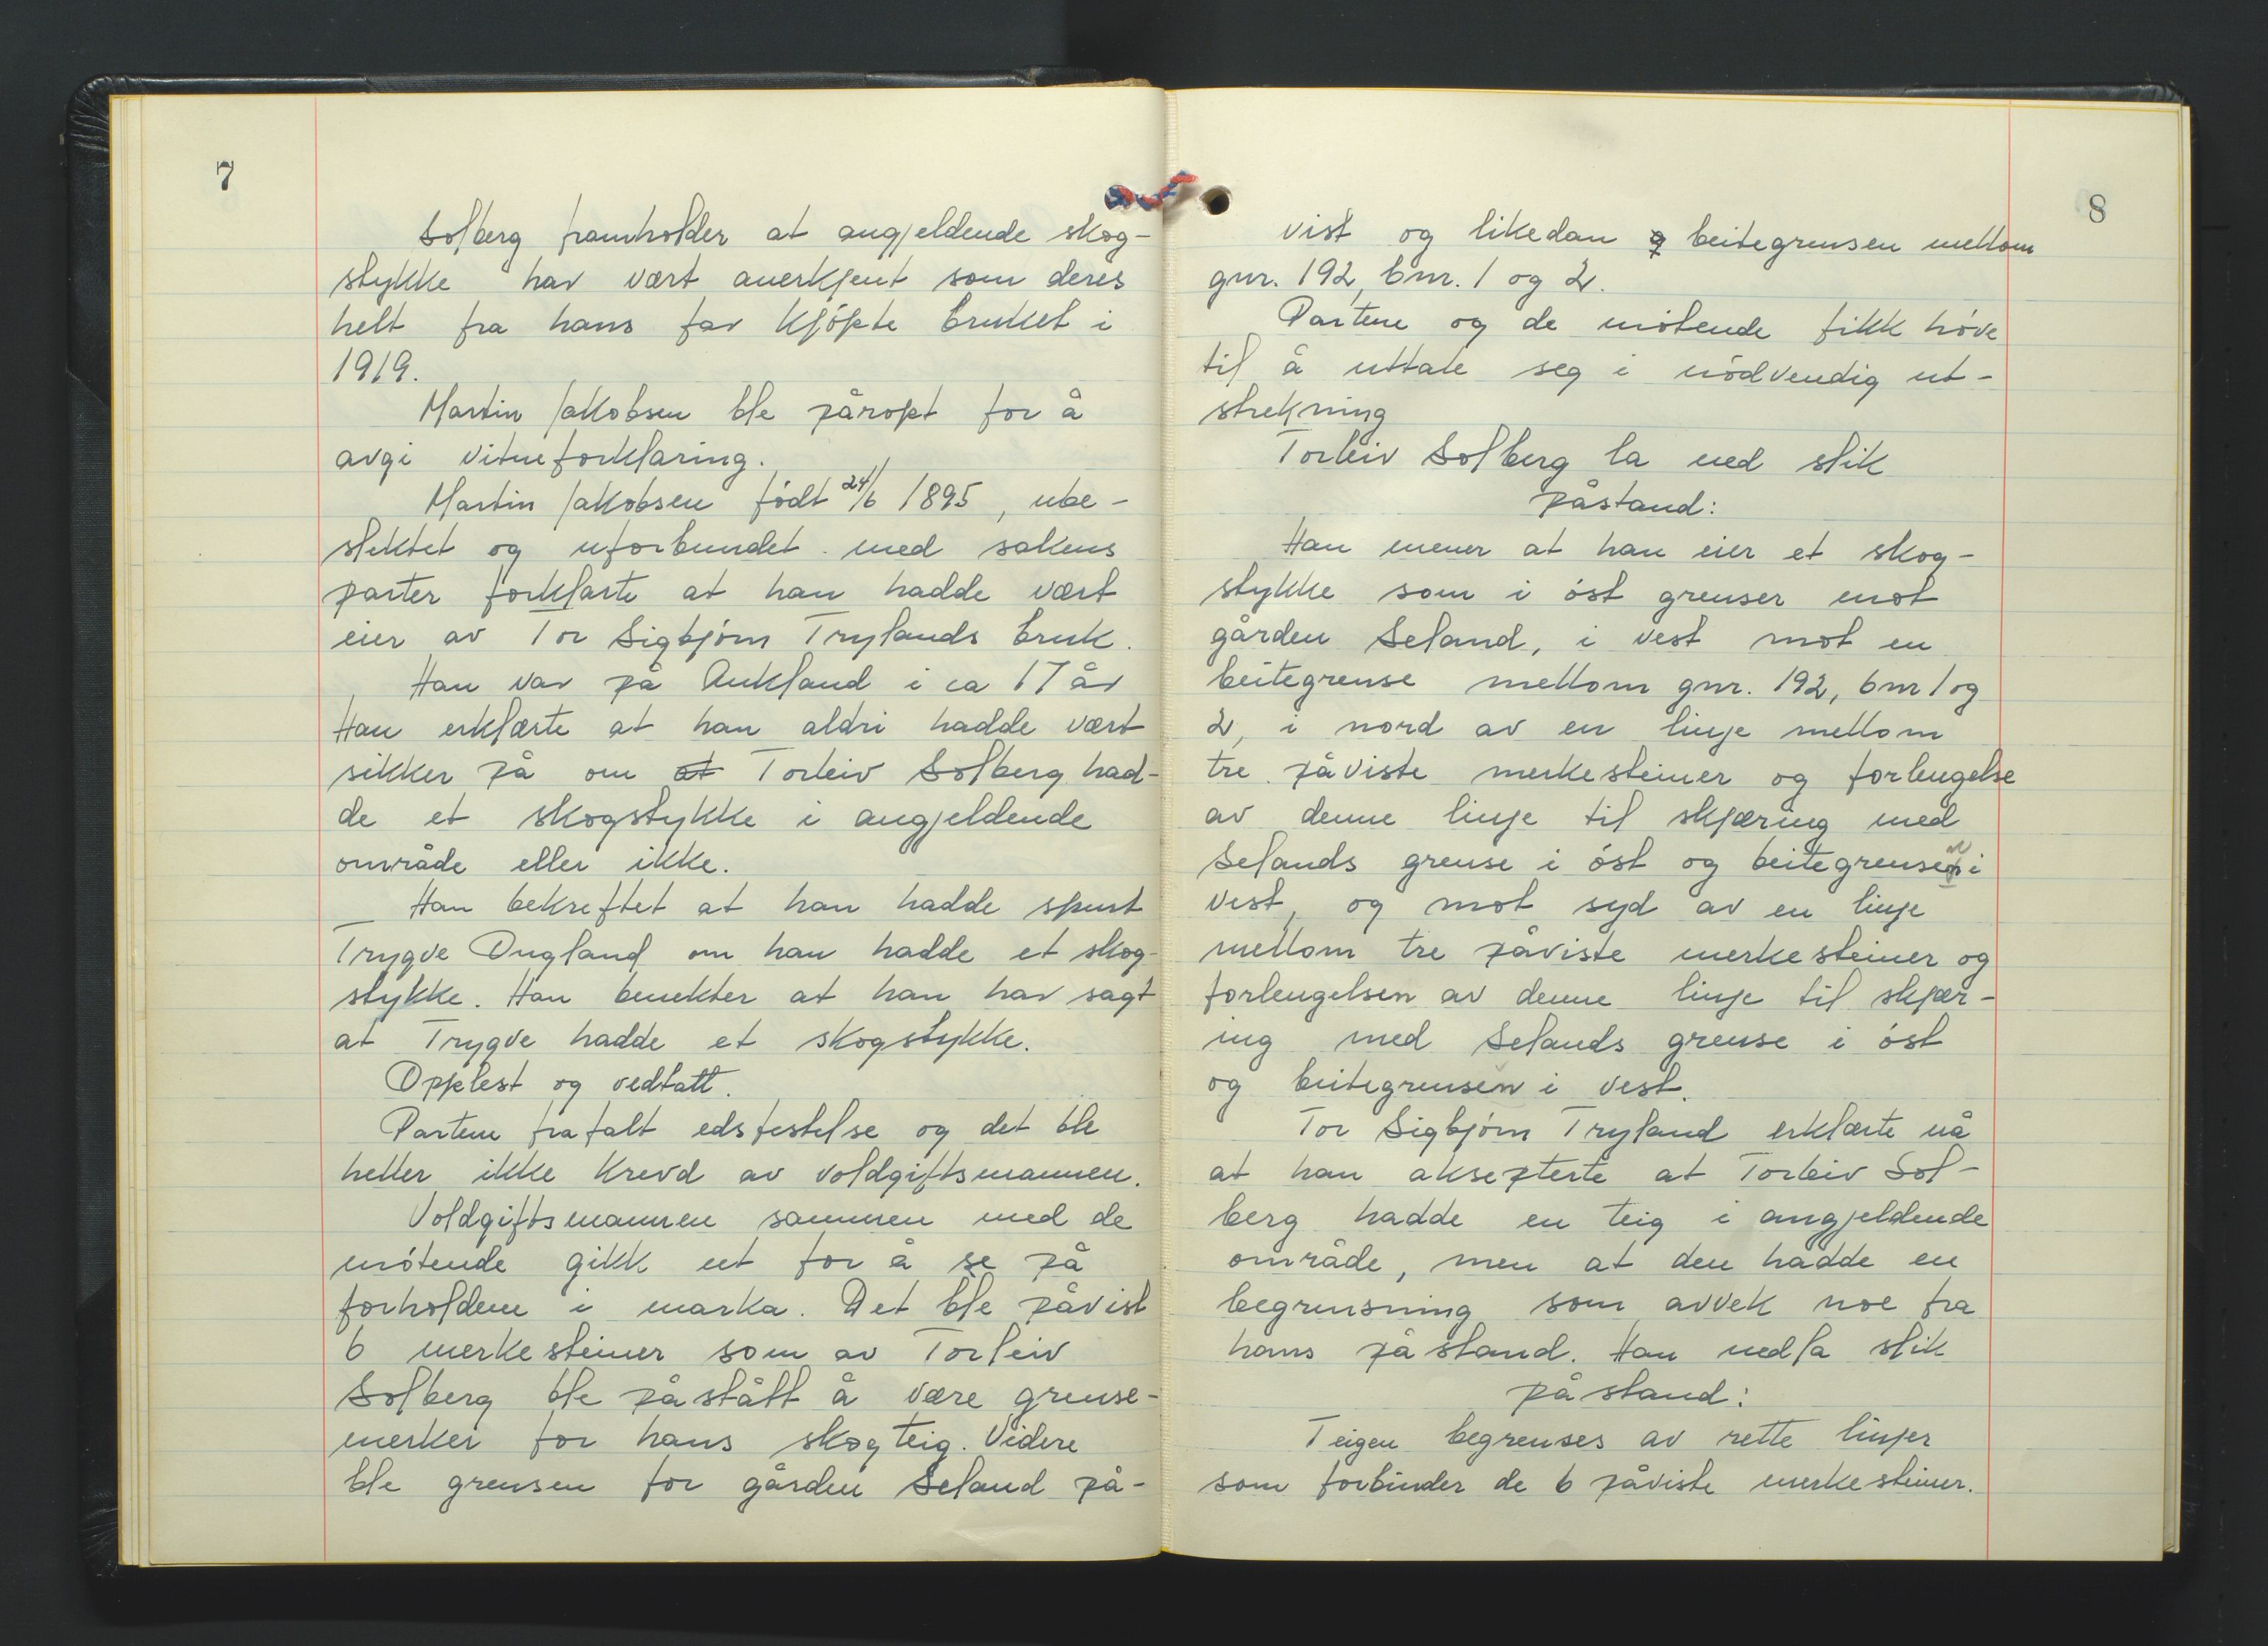 7
Solberg framholder at angjeldende skog-
stykke har vært anerkjent som deres
helt fra hans far kjöpte bruket i
1919.
Martin Jakobsen ble påropt for å
avgi vitneforklaring.
Martin Jakobsen födt 24/6 1895, ube-
slektet og uforbundet med sakens
parter forklarte at han hadde vært
eier av Tor Sigbjörn Trylands bruk.
Han var på Aukland i ca 17 år
Han erklærte at han aldri hadde vært
sikker på om at Torleiv Solberg had-
de et skogstykke i angjeldende
område eller ikke.
Han bekreftet at han hadde spurt
Trygve Ougland om han hadde et skog-
stykke. Han benekter at han har sagt
at Trygve hadde et skogstykke.
Opplest og vedtatt.
Partene frafalt edsfestelse og det ble
heller ikke krevd av voldgiftsmannen.
Voldgiftsmannen sammen med de
mötende gikk ut for å se på
forholdene i marka. Det ble påvist
6 merkesteiner som av Torleiv
Solberg ble påstått å være grense-
merker for hans skogteig. Videre
ble grensen for gården Seland på-
8
vist og likedan g beitegrensen mellom
gnr. 192, bnr. 1 og 2.
Partene og de mötende fikk höve
til å uttale seg i nödvendig ut-
strekning
Torleiv Solberg la ned slik
påstand:
Han mener at han eier et skog-
stykke som i öst grenser mot
gården Seland, i vest mot en
beitegrense mellom gnr. 192, bnr 1 og
2, i nord av en linje mellom
tre påviste merkesteiner og forlengelse
av denne linje til skjæring med
Selands grense i öst og beitegrensen i
vest, og mot syd av en linje
mellom tre påviste merkesteiner og
forlengelsen av denne linje til skjær-
ing med Selands grense i öst
og beitegrensen i vest.
Tor Sigbjörn Tryland erklærte nå
at han aksepterte at Torleiv Sol-
berg hadde en teig i angjeldende
område, men at den hadde en
begrensning som avvek noe fra
hans påstand. Han nedla slik
påstand:
Teigen begrenses av rette linjer
som forbinder de 6 påviste merkesteiner.